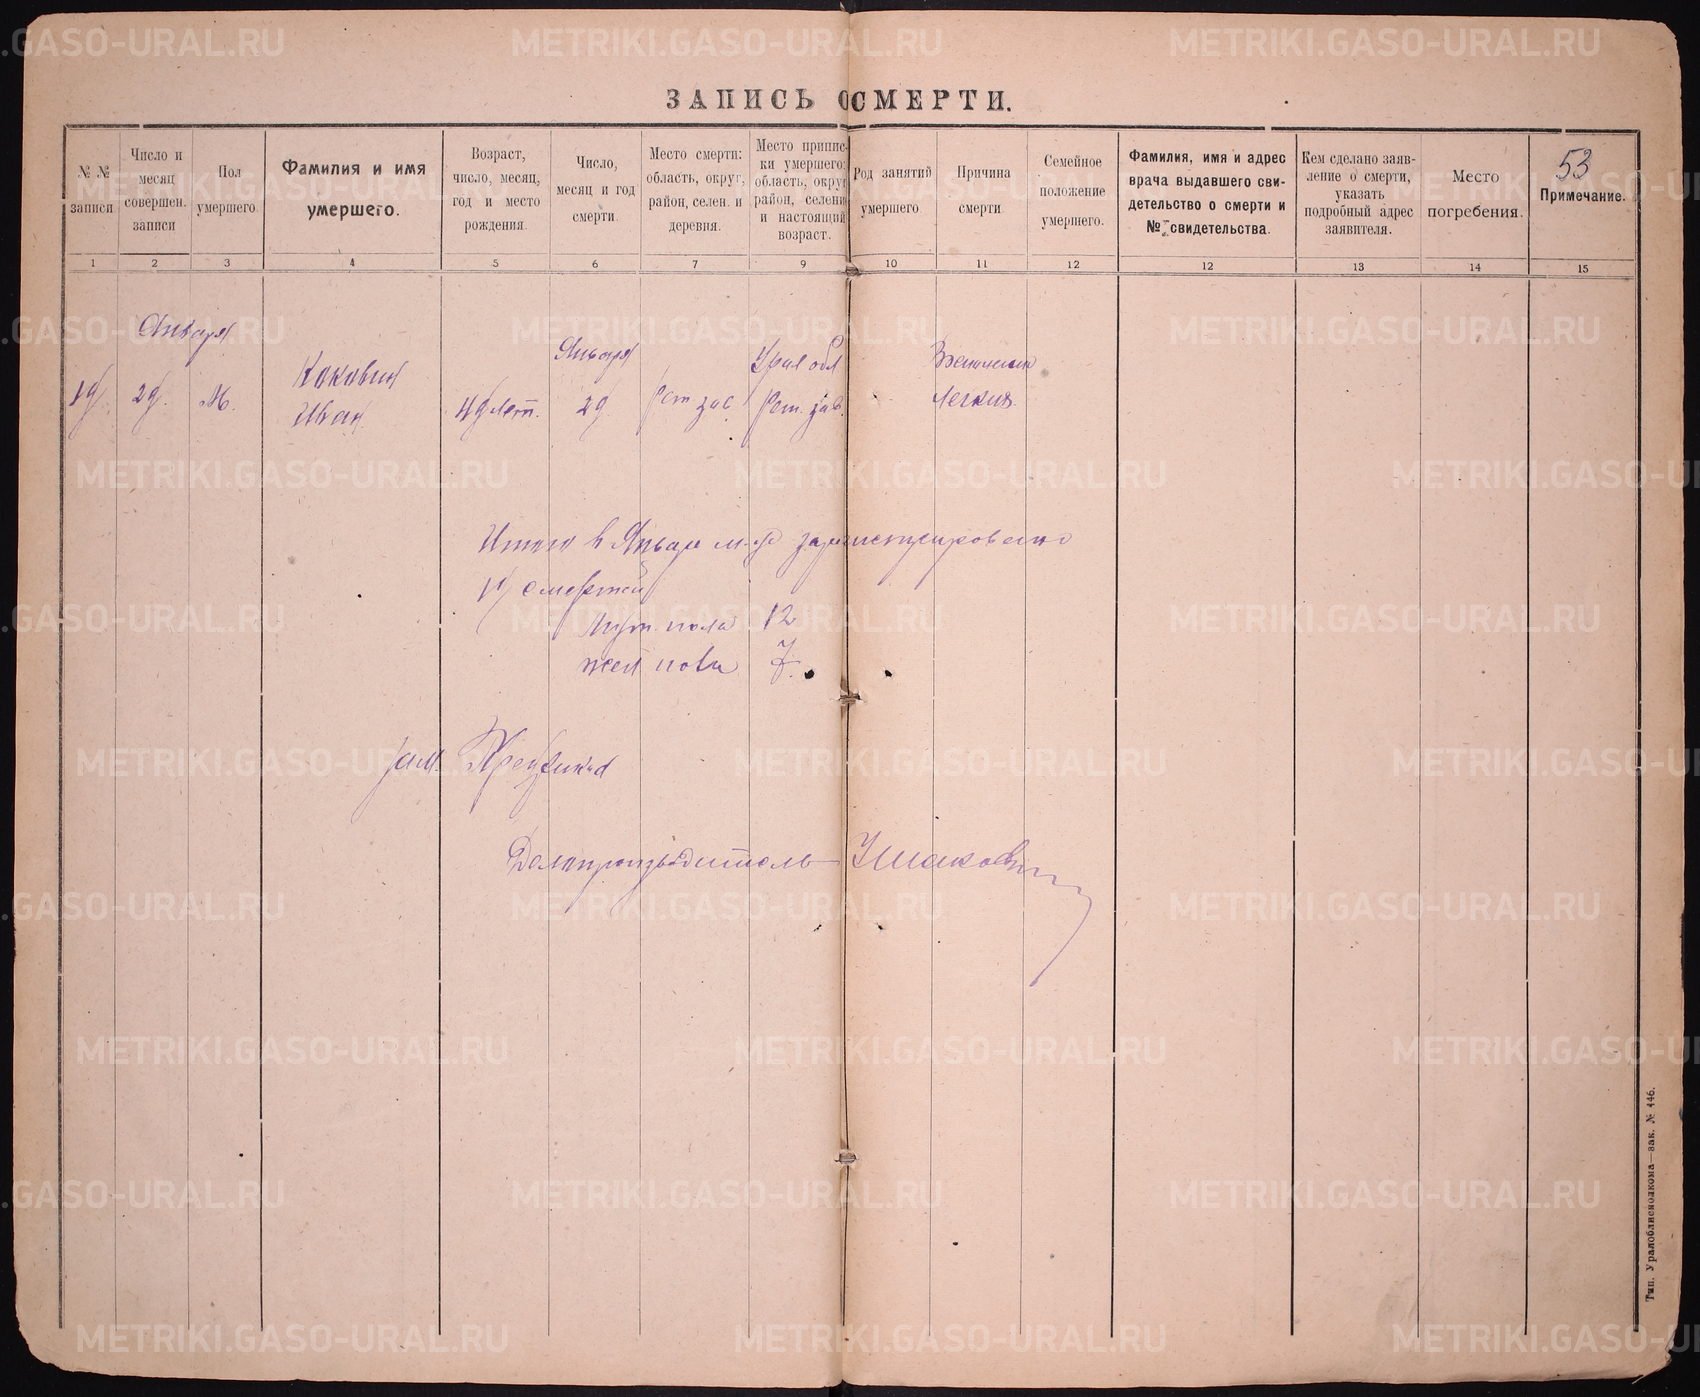 ЗАПИСЬ О СМЕРТИ.
53
№ № записи
Число и месяц совершен. записи
Пол умершего.
Фамилия и имя умершего.
Возраст, число, месяц, год и место рождения.
Число, месяц и год смерти.
Место смерти: область, округ, район, селен. и деревня.
Место приписки умершего: область, округ, район, селение и настоящий возраст.
Род занятий умершего.
Причина смерти.
Семейное положение умершего.
Фамилия, имя и адрес врача выдавшего свидетельство о смерти и № свидетельства.
Кем сделано заявление о смерти, указать подробный адрес заявителя.
Место погребения.
Примечание.
1 2 3 4 5 6 7 9 10 11 12 12 13 14 15
Января
Января
Урал обл
Коковин
19 29 М.
Иван
49 лет.
29
Легких
Итого в Январе м-це зарегистрировано
19 смертей
Муж. пола 12
жен пола 7.
Зам.
Делопроизводитель Ушаков
Тип. Уралоблисполкома—зак. № 446.
METRIKI.GASO-URAL.RU